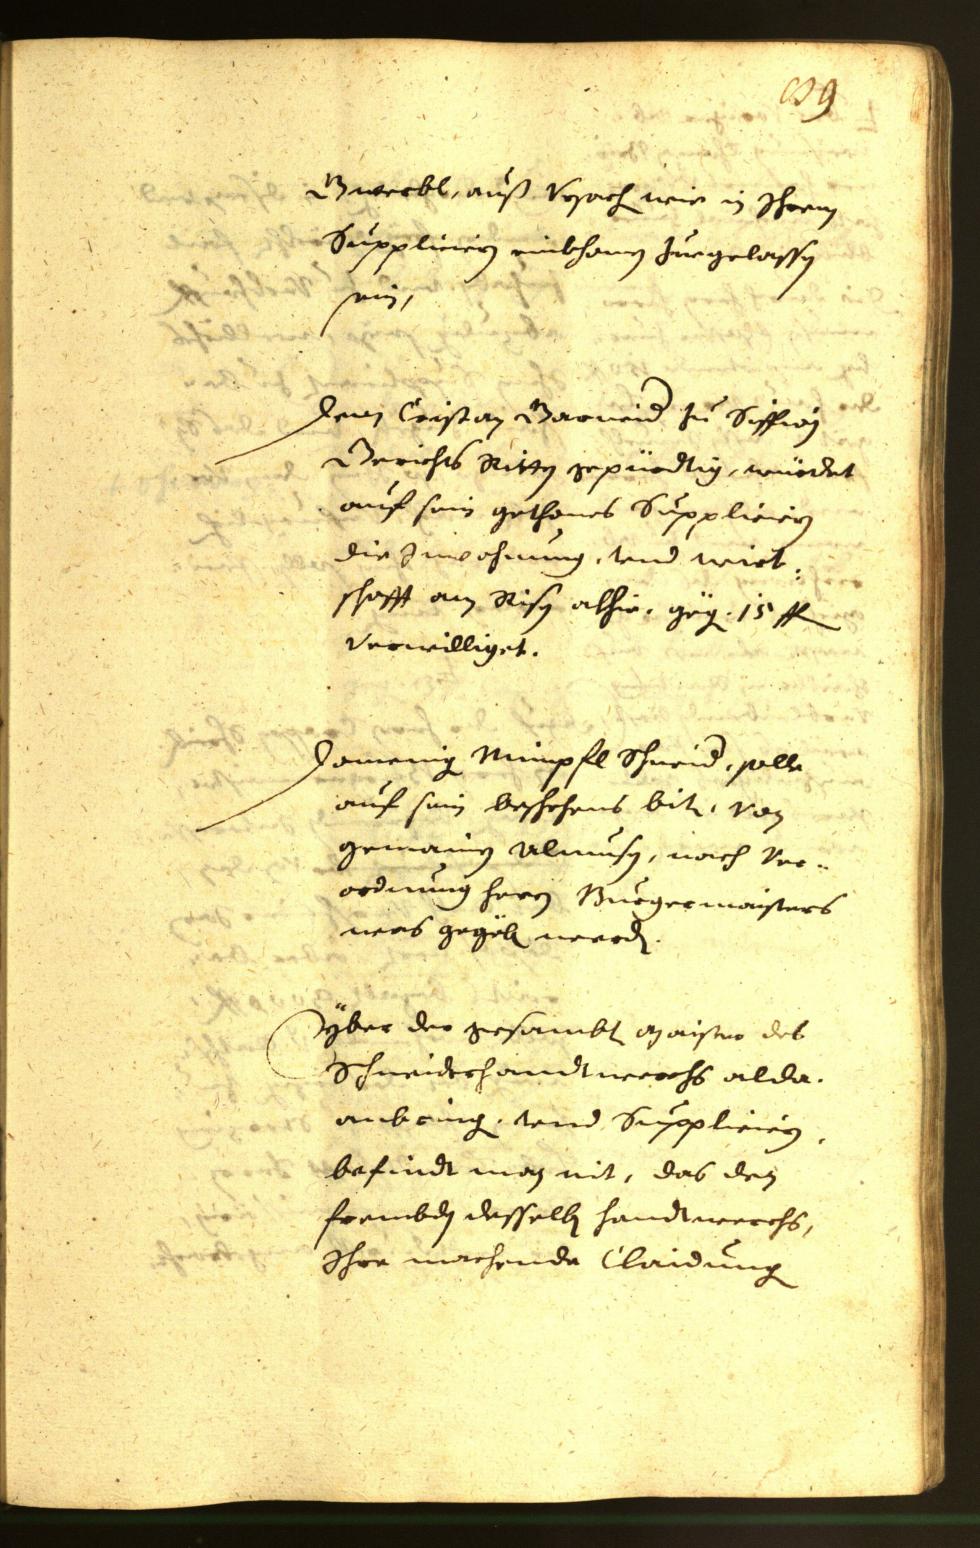 Gwerbl, auß Vrsach wie in Ihrem
Supplicieren einkhomen zuegelassen
sein,
Dem Cristan Barneid zu Siffian
Gerichts Ritten gepürdtig, würdet
auf sein gethanes Supplicieren
die Inwohnung, vnd wirt-
schafft am Risen alhie, gegen 15 fl
verwilliget.
Domenig Mimpfl Schneider, solle
auf sein beschehens bit, von
gemainen Almusen, nach Ver-
ordnung heren Burgermaisters
was gegeben werden.
Yber der gesambten maister des
Schneiderhandtwerchs alda
anbringen, vnd Supplicieren,
befindt man nit, das den
frembden desselben handtwerchs,
Ihre machende Claidung